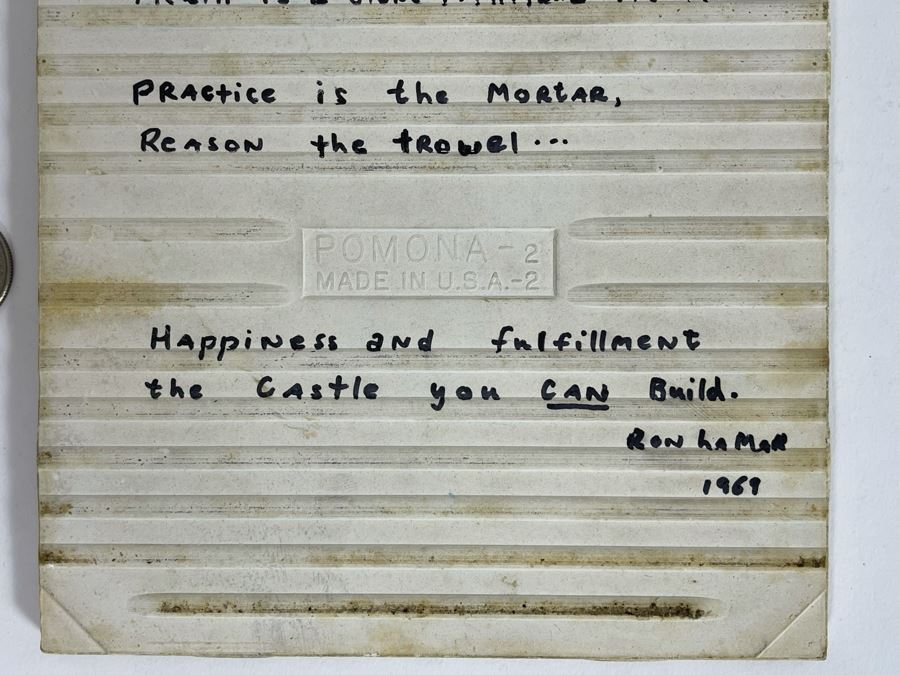 PRActice is the MORtAR,
ReASON the tROwel...
POMONA-2
MADE IN U.S.A.-2
HAppiNess and fulfillMENt
the CAstle you CAN Build.
RON LAMAR
1969